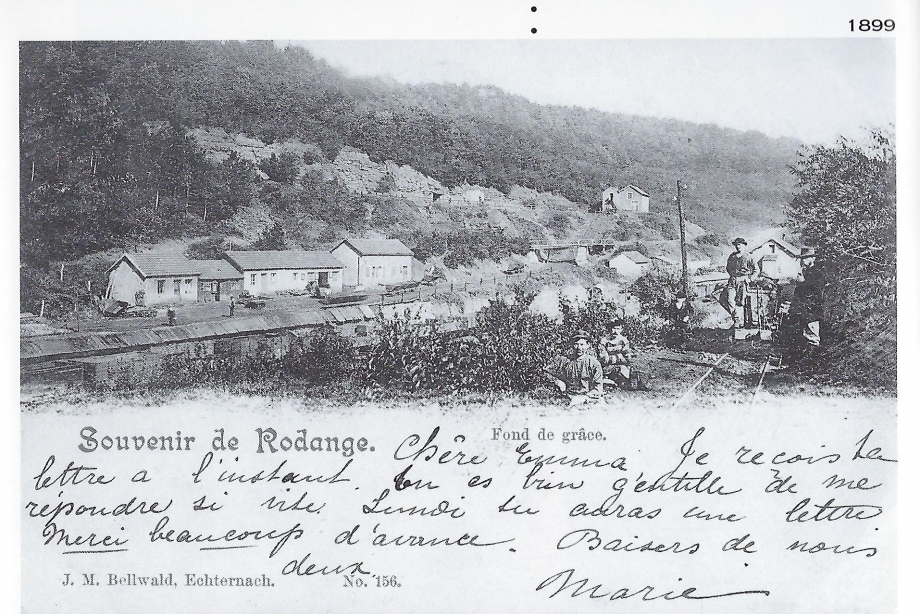 1899
Souvenir de Rodange.
Fond de grâce.
Chère Emma, Je reçois ta
lettre a l'instant. tu es bien gentille de me
répondre si vite. Lundi tu auras une lettre
Merci beaucoup d'avance. Baisers de nous
deux.
Marie
J. M. Bellwald, Echternach.
No. 156.